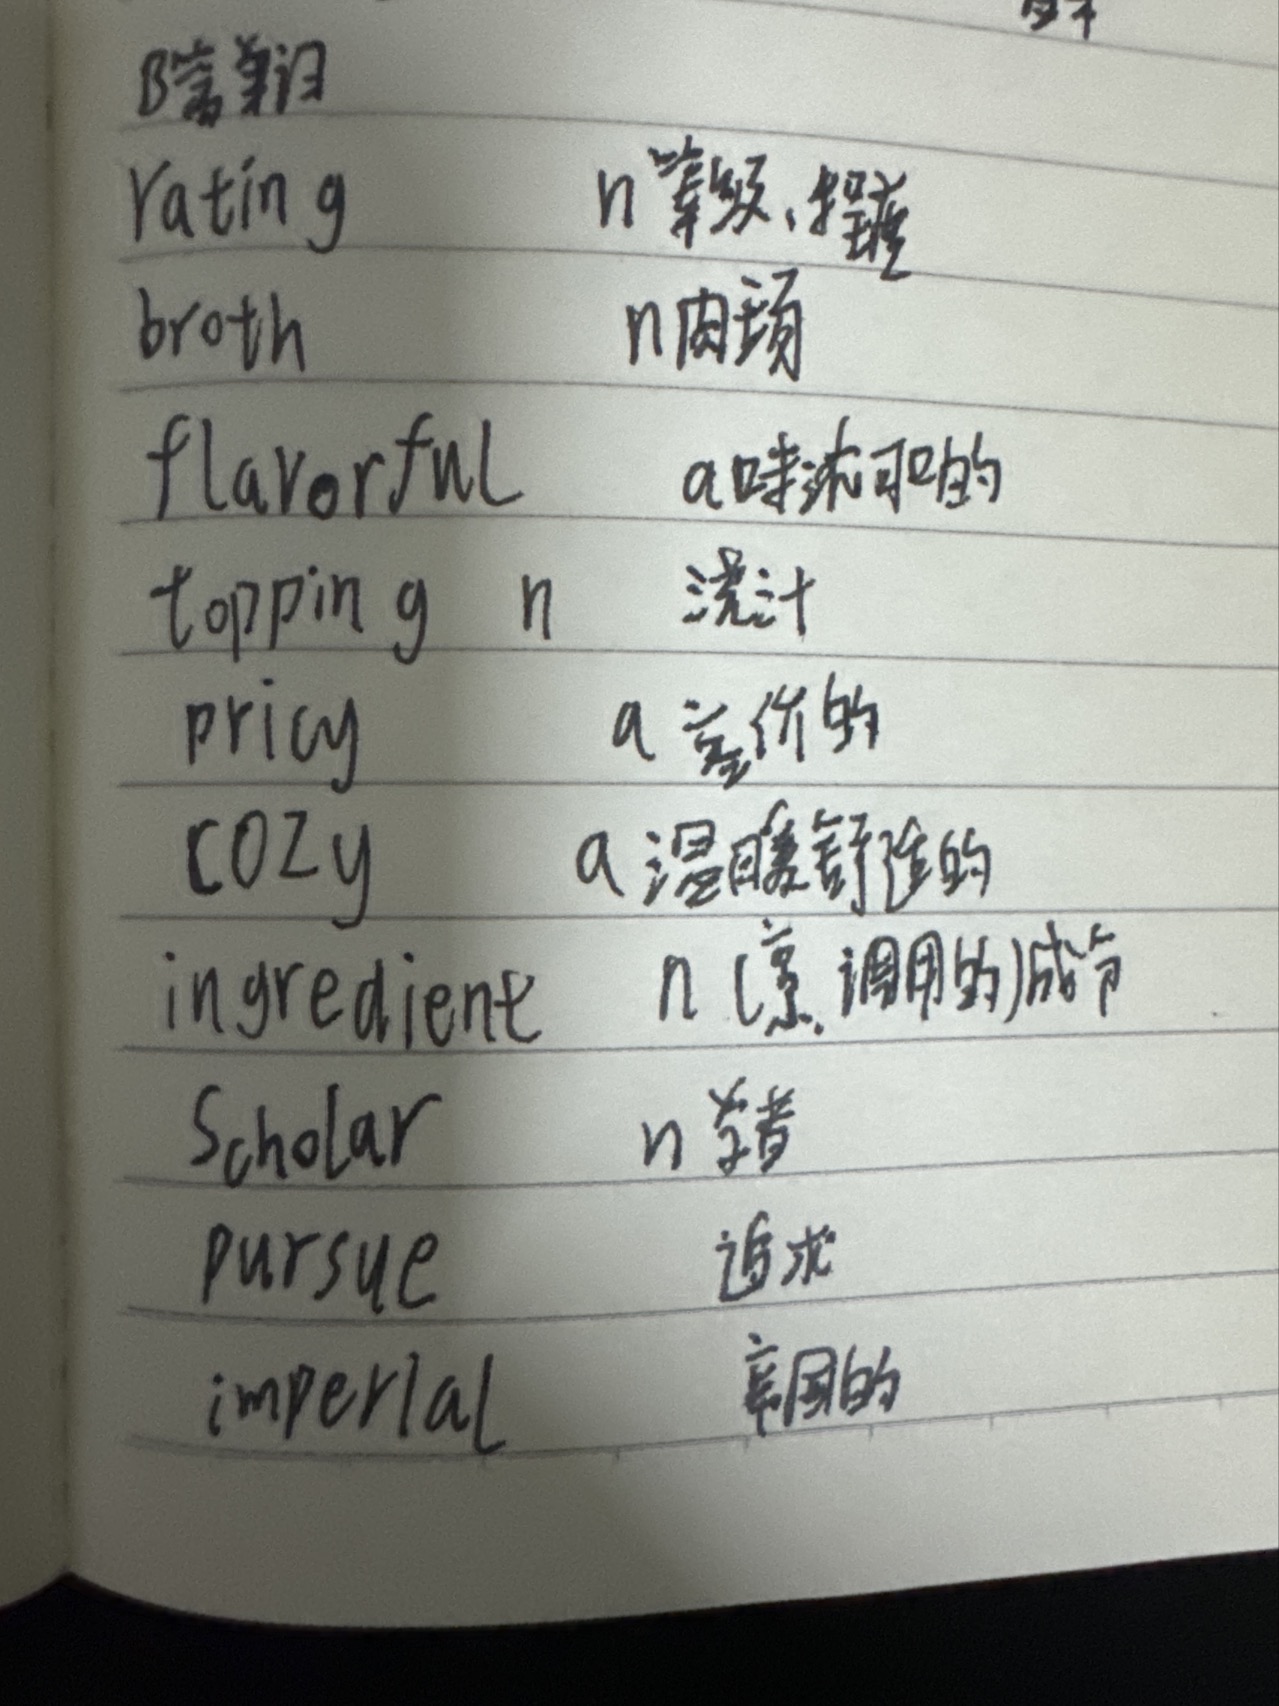 B篇单词
rating n 等级、程度
broth n 肉
flavorful a 味浓可口的
topping n 浇汁
pricy a 高价的
cozy a 温暖舒适的
ingredient n (烹调用的)成分
Scholar n 学者
pursue 追求
imperial 帝国的